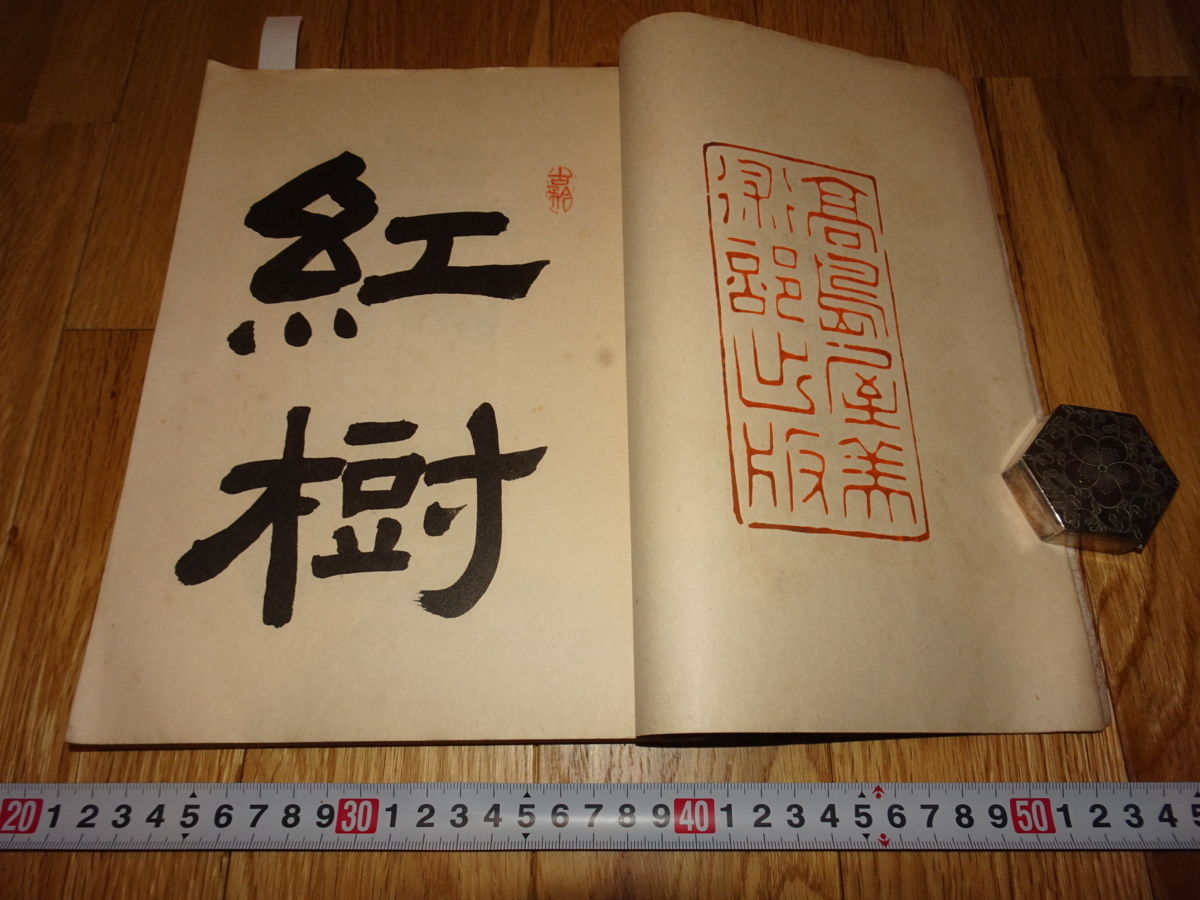 高島屋美
術部出版
紅樹
20 1 2 3 4 5 6 7 8 9 30 1 2 3 4 5 6 7 8 9 40 1 2 3 4 5 6 7 8 9 50 1 2 3 4 5